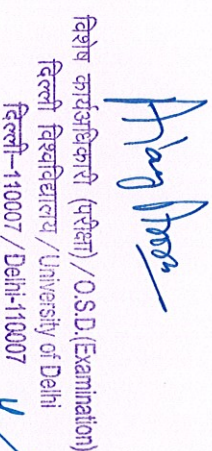 विशेष कार्यअधिकारी (परीक्षा) / O.S.D.(Examination)
दिल्ली विश्वविद्यालय / University of Delhi
दिल्ली–110007 / Delhi-110007